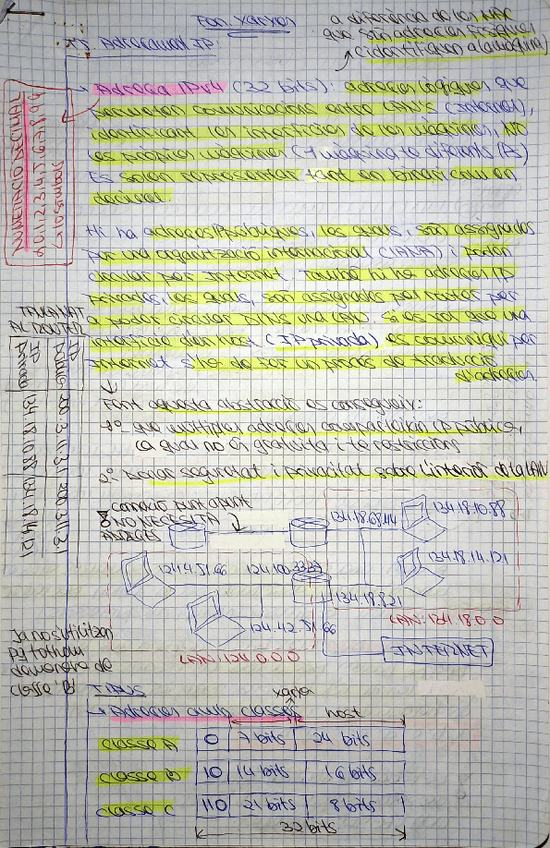 Fon. Xarxes
a diferència de les MAC
que són adreces físiques
(identifiquen a la màquina)
T5 Adreçament IP
Adreça IPv4 (32 bits): adreces lògiques que
permeten comunicacions entre LAN's (Internet),
identificant les interfícies de les màquines, NO
les pròpies màquines (1 màquina té diferents IPs)
Es solen representar tant en binari com en
decimal.
NUMERACIÓ DECIMAL
0,1,2,3,4,5,6,7,8,9
10 símbols
Hi ha adreces IP públiques, les quals, són assignades
per una organització internacional (IANA) i poden
circular per Internet. També hi ha adreces IP
privades, les quals, són assignades per routers per
a poder circular dins una LAN. Si es vol que una
interfície d'un host (IP privada) es comuniqui per
Internet s'ha de fer un procés de traducció
d'adreces.
TAULA NAT
AL ROUTER
IP pública
IP privada
200.3.11.31
134.18.10.88
134.18.14.121
Fent aquesta abstracció es consegueix:
1º que múltiples adreces comparteixin IP pública,
la qual no és gratuïta i té restriccions
2º major seguretat i privacitat sobre l'interior de la LAN
connexió punt a punt
NO NECESSITA
ADRECES
134.18.68.44
134.18.10.88
134.18.14.121
134.18.8.21
LAN: 134.18.0.0
124.4.51.66
124.100.33.29
124.42.51.66
LAN: 124.0.0.0
INTERNET
Ja no s'utilitzen
TIPUS
xarxa
host
Adreces amb classes
classe A 0 7 bits 24 bits
classe B 10 14 bits 16 bits
classe C 110 21 bits 8 bits
32 bits